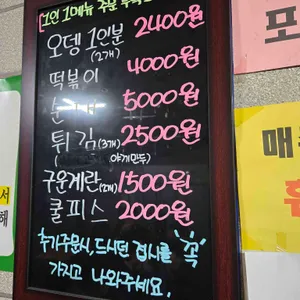 [1인 1메뉴 주문
오뎅 1인분 2400원
(2개)
떡볶이 4000원
순 5000원
튀김(3개) 2500원
( 야끼만두)
구운계란(2개) 1500원
쿨피스 2000원
추가주문시, 드시던 접시를 꼭
가지고 나와주세요.
포
매